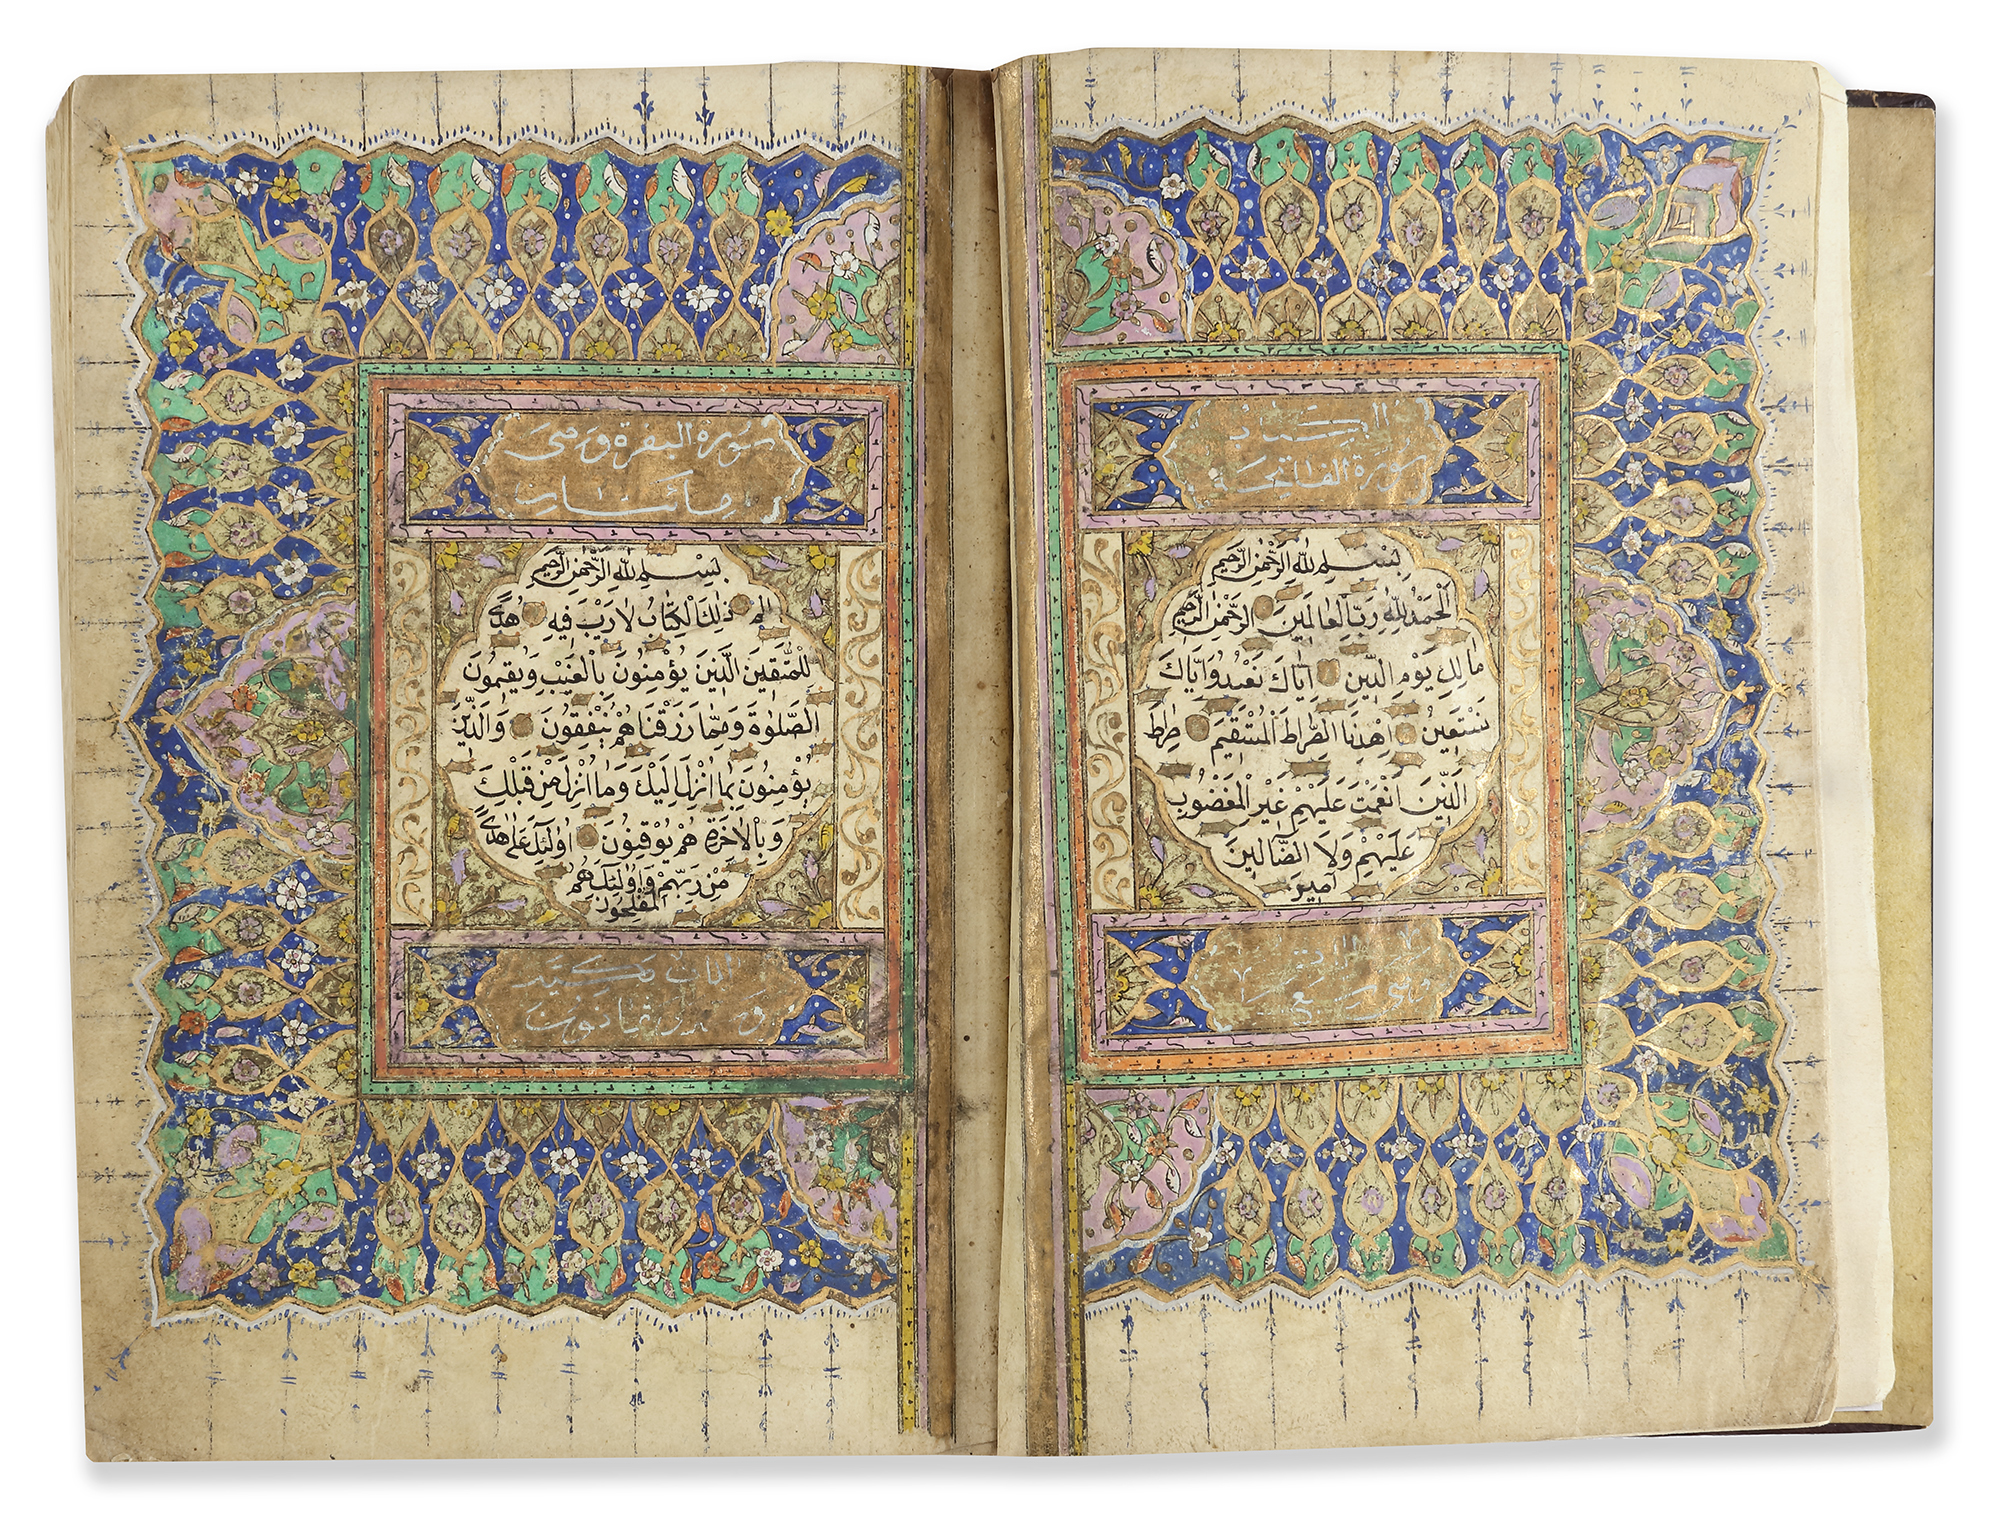 سورة الفاتحة
بِسْمِ اللّٰهِ الرَّحْمٰنِ الرَّحِيمِ
اَلْحَمْدُ لِلّٰهِ رَبِّ الْعَالَمِينَ الرَّحْمٰنِ الرَّحِيمِ
مَالِكِ يَوْمِ الدِّينِ اِيَّاكَ نَعْبُدُ وَاِيَّاكَ
نَسْتَعِينُ اِهْدِنَا الصِّرَاطَ الْمُسْتَقِيمَ صِرَاطَ
الَّذِينَ اَنْعَمْتَ عَلَيْهِمْ غَيْرِ الْمَغْضُوبِ
عَلَيْهِمْ وَلَا الضَّالِّينَ
اٰمِين
سورة البقرة وهى
مائتان
بِسْمِ اللّٰهِ الرَّحْمٰنِ الرَّحِيمِ
الم ذٰلِكَ الْكِتَابُ لَا رَيْبَ فِيهِ هُدًى
لِلْمُتَّقِينَ الَّذِينَ يُؤْمِنُونَ بِالْغَيْبِ وَيُقِيمُونَ
الصَّلٰوةَ وَمِمَّا رَزَقْنَاهُمْ يُنْفِقُونَ وَالَّذِينَ
يُؤْمِنُونَ بِمَا اُنْزِلَ اِلَيْكَ وَمَا اُنْزِلَ مِنْ قَبْلِكَ
وَبِالْاٰخِرَةِ هُمْ يُوقِنُونَ اُولٰئِكَ عَلٰى هُدًى
مِنْ رَبِّهِمْ وَاُولٰئِكَ هُمُ
الْمُفْلِحُونَ